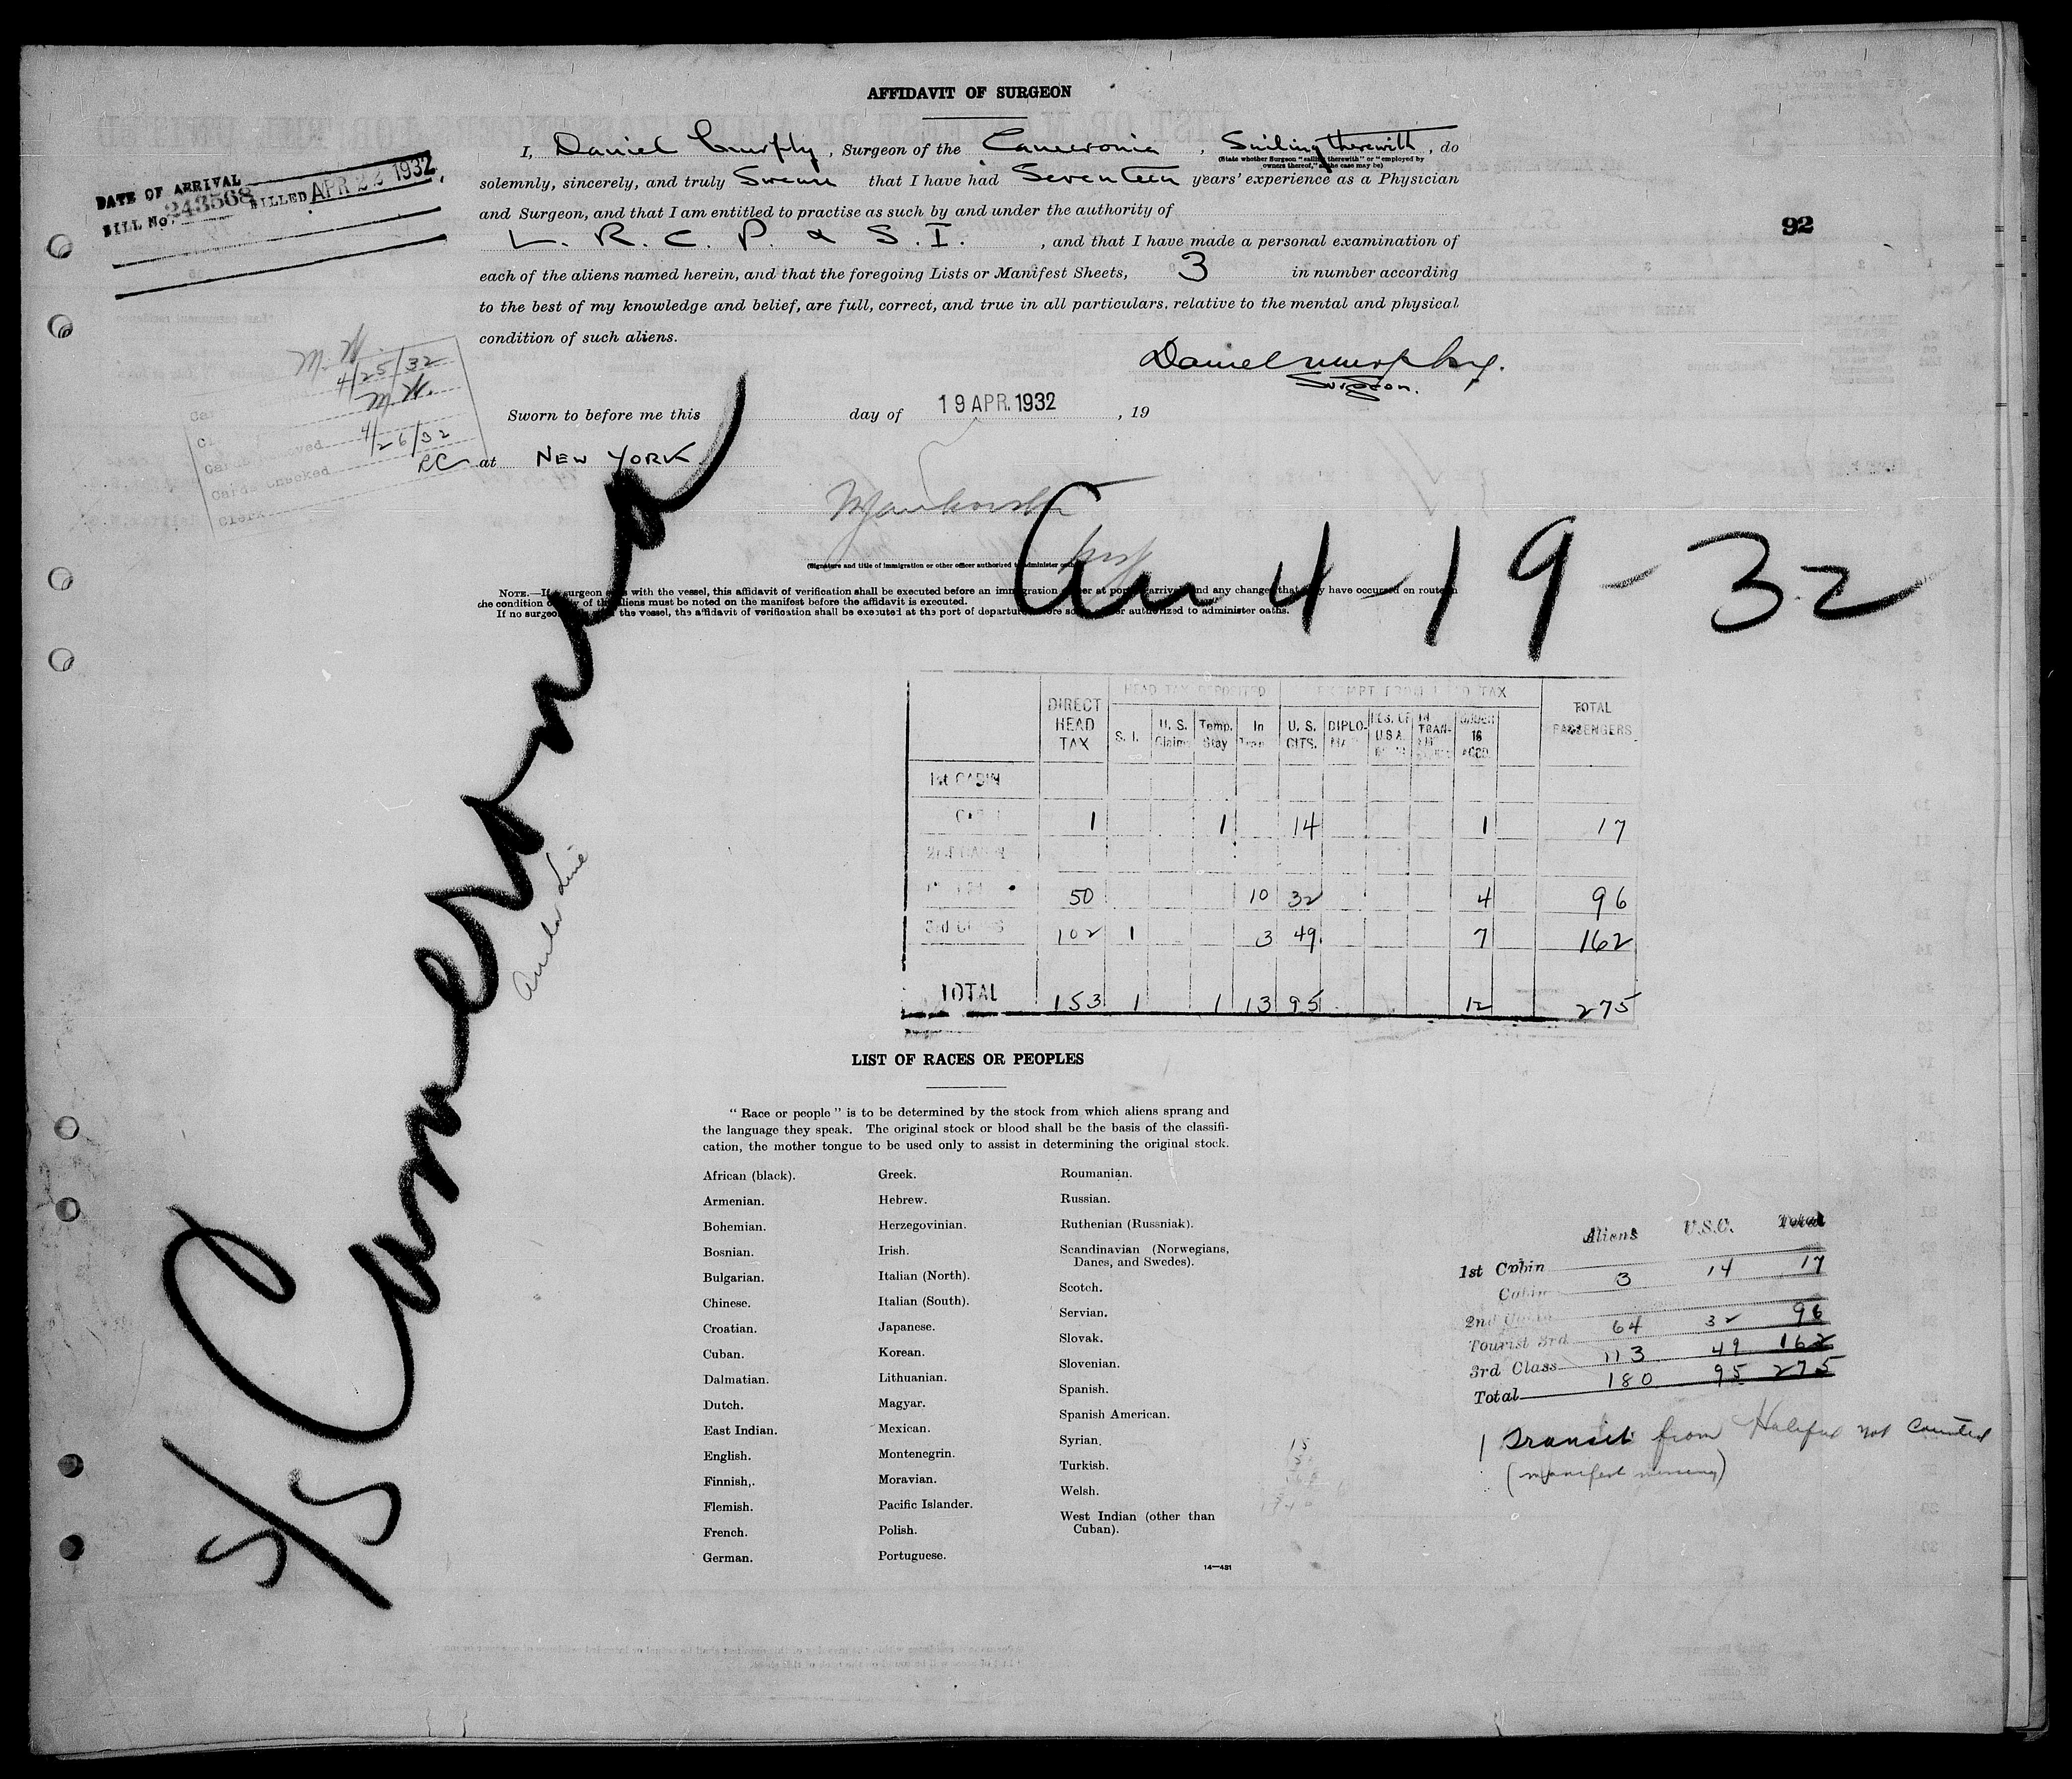 AFFIDAVIT OF SURGEON
I, Daniel Murphy, Surgeon of the Cameronia, Sailing therewith, do
(State whether Surgeon "sailing therewith" or "employed by
owners thereof," as the case may be)
solemnly, sincerely, and truly Swear that I have had Seventeen years' experience as a Physician
and Surgeon, and that I am entitled to practise as such by and under the authority of
L. R. C. P. & S. I. , and that I have made a personal examination of
each of the aliens named herein, and that the foregoing Lists or Manifest Sheets, 3 in number according
to the best of my knowledge and belief, are full, correct, and true in all particulars, relative to the mental and physical
condition of such aliens.
DATE OF ARRIVAL
BILL No. 243568 BILLED APR 1932
92
Daniel Murphy.
Surgeon.
M. H.
4/25/32
M. H.
4/26/32
Cards Checked RC
Clerk
Sworn to before me this day of 19 APR. 1932 , 19
at NEW YORK
(Signature and title of immigration or other officer authorized to administer oaths)
Arr 4-19-32
NOTE.—If a surgeon sails with the vessel, this affidavit of verification shall be executed before an immigration officer at port of arrival and any changes that may have occurred en route in
the condition of any of the aliens must be noted on the manifest before the affidavit is executed.
If no surgeon sails with the vessel, the affidavit of verification shall be executed at the port of departure before some officer authorized to administer oaths.
S/S Cameronia
Anchor Line
HEAD TAX DEPOSITED EXEMPT FROM HEAD TAX
DIRECT HEAD TAX S. I. U. S. Claims Temp. Stay In Tran. U. S. CITS. DIPLO- RES. OF U.S.A. IN TRAN- UNDER 16 ACCD. TOTAL PASSENGERS
1st CABIN
CABIN 1 1 14 1 17
2nd CABIN
50 10 32 4 96
3rd CLASS 102 1 3 49 7 162
TOTAL 153 1 1 13 95 12 275
LIST OF RACES OR PEOPLES
"Race or people" is to be determined by the stock from which aliens sprang and
the language they speak. The original stock or blood shall be the basis of the classifi-
cation, the mother tongue to be used only to assist in determining the original stock.
African (black).
Armenian.
Bohemian.
Bosnian.
Bulgarian.
Chinese.
Croatian.
Cuban.
Dalmatian.
Dutch.
East Indian.
English.
Finnish,.
Flemish.
French.
German.
Greek.
Hebrew.
Herzegovinian.
Irish.
Italian (North).
Italian (South).
Japanese.
Korean.
Lithuanian.
Magyar.
Mexican.
Montenegrin.
Moravian.
Pacific Islander.
Polish.
Portuguese.
Roumanian.
Russian.
Ruthenian (Russniak).
Scandinavian (Norwegians,
Danes, and Swedes).
Scotch.
Servian.
Slovak.
Slovenian.
Spanish.
Spanish American.
Syrian.
Turkish.
Welsh.
West Indian (other than
Cuban).
14—481
Aliens U.S.C. Total
1st Cabin 3 14 17
Cabin
2nd Cabin 64 32 96
Tourist 3rd 113 49 162
3rd Class 180 95 275
Total
1 Transit from Halifax not counted
(manifest missing)